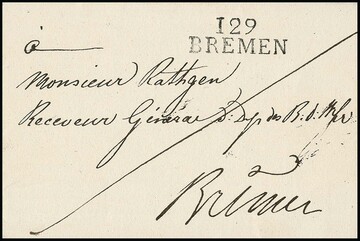 129
BREMEN
à
Monsieur Rathgen
Receveur Général
Brêmen